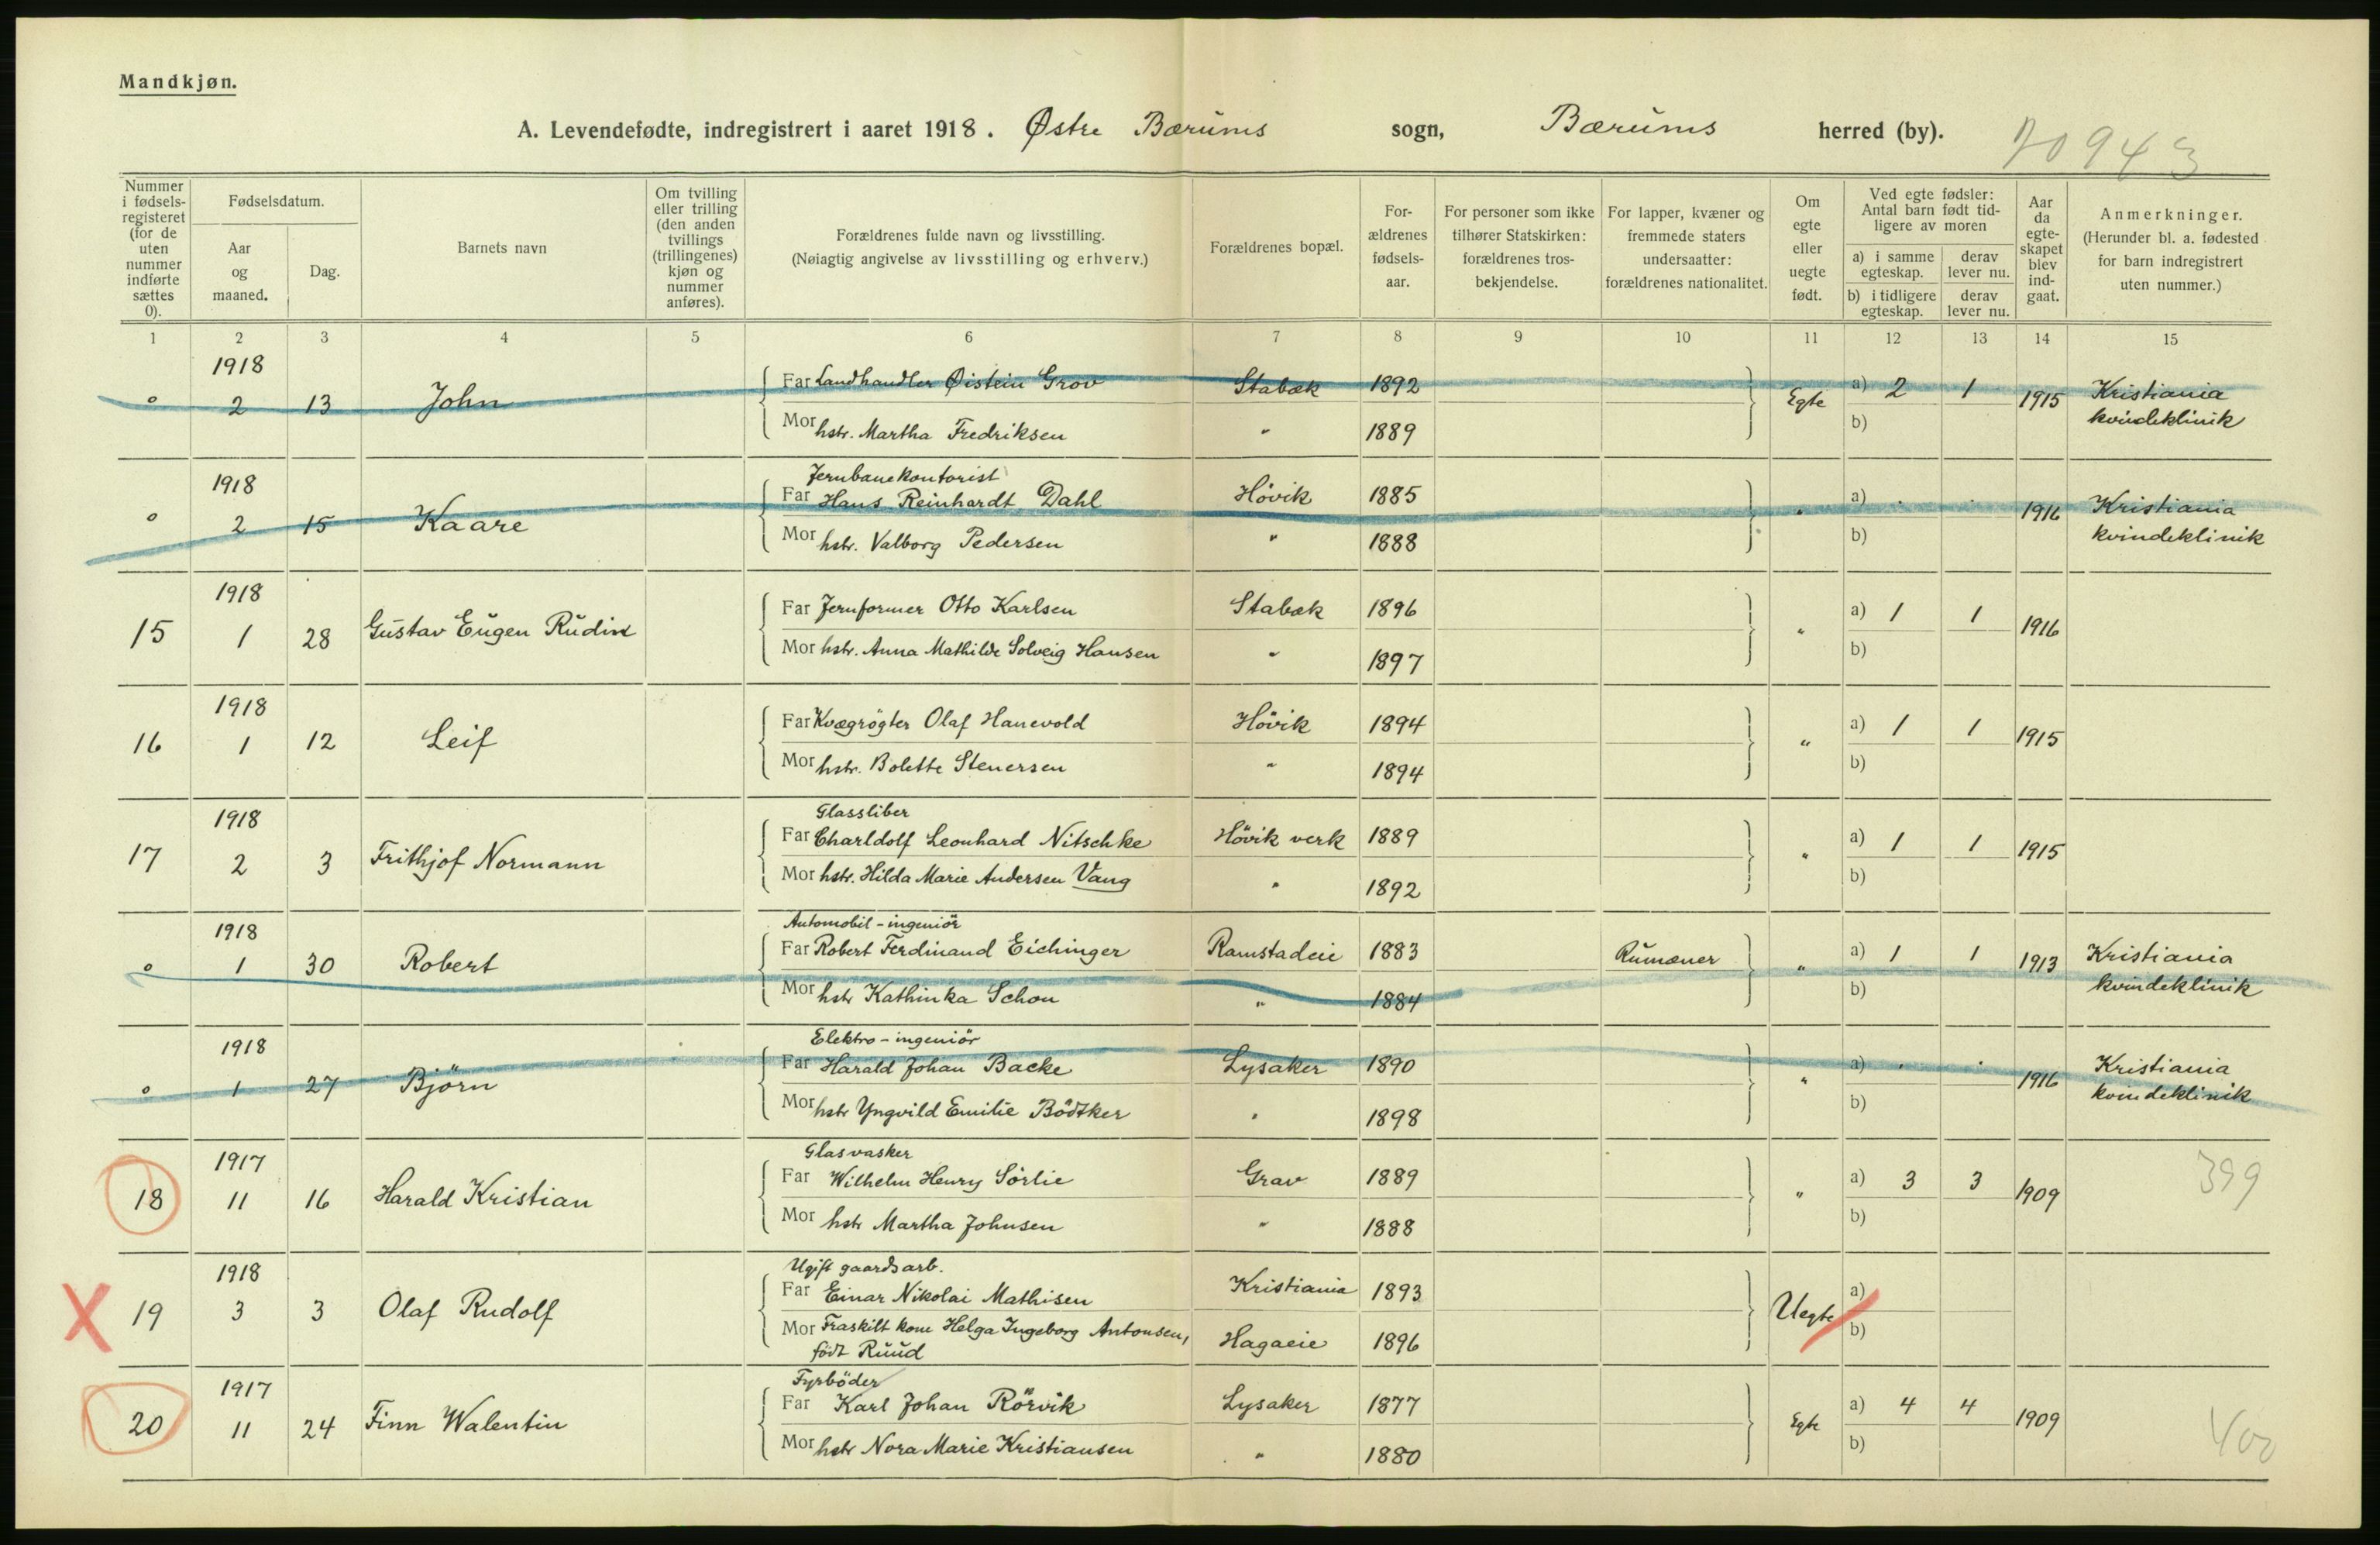 Mandkjøn.
A. Levendefødte, indregistrert i aaret 1918. Østre Bærums sogn, Bærums herred (by).
70943
Nummer i fødsels-registeret (for de uten nummer indførte sættes 0).
Fødselsdatum.
Aar og maaned.
Dag.
Barnets navn
Om tvilling eller trilling (den anden tvillings (trillingenes) kjøn og nummer anføres).
Forældrenes fulde navn og livsstilling.
(Nøiagtig angivelse av livsstilling og erhverv.)
Forældrenes bopæl.
For-ældrenes fødsels-aar.
For personer som ikke tilhører Statskirken: forældrenes tros-bekjendelse.
For lapper, kvæner og fremmede staters undersaatter: forældrenes nationalitet.
Om egte eller uegte født.
Ved egte fødsler: Antal barn født tid-ligere av moren
a) i samme egteskap.
derav lever nu.
b) i tidligere egteskap.
derav lever nu.
Aar da egte-skapet blev ind-gaat.
Anmerkninger.
(Herunder bl. a. fødested for barn indregistrert uten nummer.)
1 2 3 4 5 6 7 8 9 10 11 12 13 14 15
1918
0 2 13 John
Far Landhandler Øistein Grov Stabæk 1892
Egte a) 2 1 1915 Kristiania
Mor hstr. Martha Fredriksen " 1889
b) kvindeklinik
1918
Jernbanekontorist
0 2 15 Kaare
Far Hans Reinhardt Dahl Høvik 1885
" a) . . 1916 Kristiania
Mor hstr. Valborg Pedersen " 1888
b) kvindeklinik
1918
15 1 28 Gustav Eugen Rudin
Far Jernformer Otto Karlsen Stabæk 1896
" a) 1 1 1916
Mor hstr. Anna Mathilde Solveig Hansen " 1897
b)
1918
16 1 12 Leif
Far Kvægrøgter Olaf Hanevold Høvik 1894
" a) 1 1 1915
Mor hstr. Bolette Stenersen " 1894
b)
1918
Glassliber
17 2 3 Frithjof Normann
Far Charldolf Leonhard Nitschke Høvik verk 1889
" a) 1 1 1915
Mor hstr. Hilda Marie Andersen Vang " 1892
b)
1918
Automobil-ingeniör
0 1 30 Robert
Far Robert Ferdinand Eichinger Ramstadeie 1883 Rumæner
" a) 1 1 1913 Kristiania
Mor hstr Kathinka Schou " 1884
b) kvindeklinik
1918
Elektro-ingeniör
0 1 27 Björn
Far Harald Johan Backe Lysaker 1890
" a) . . 1916 Kristiania
Mor hstr Yngvild Emilie Bödtker " 1898
b) kvindeklinik
1917
Glasvasker
18 11 16 Harald Kristian
Far Wilhelm Henry Sörlie Grav 1889
" a) 3 3 1909 399
Mor hstr Martha Johnsen " 1888
b)
1918
Ugift gaardsarb.
X 19 3 3 Olaf Rudolf
Far Einar Nikolai Mathisen Kristiania 1893
Uegte a)
Mor Fraskilt kone Helga Ingeborg Antonsen, Hagaeie 1896
født Ruud
b)
1917
Fyrböder
20 11 24 Finn Walentin
Far Karl Johan Rörvik Lysaker 1877
Egte a) 4 4 1909 400
Mor hstr Nora Marie Kristiansen " 1880
b)